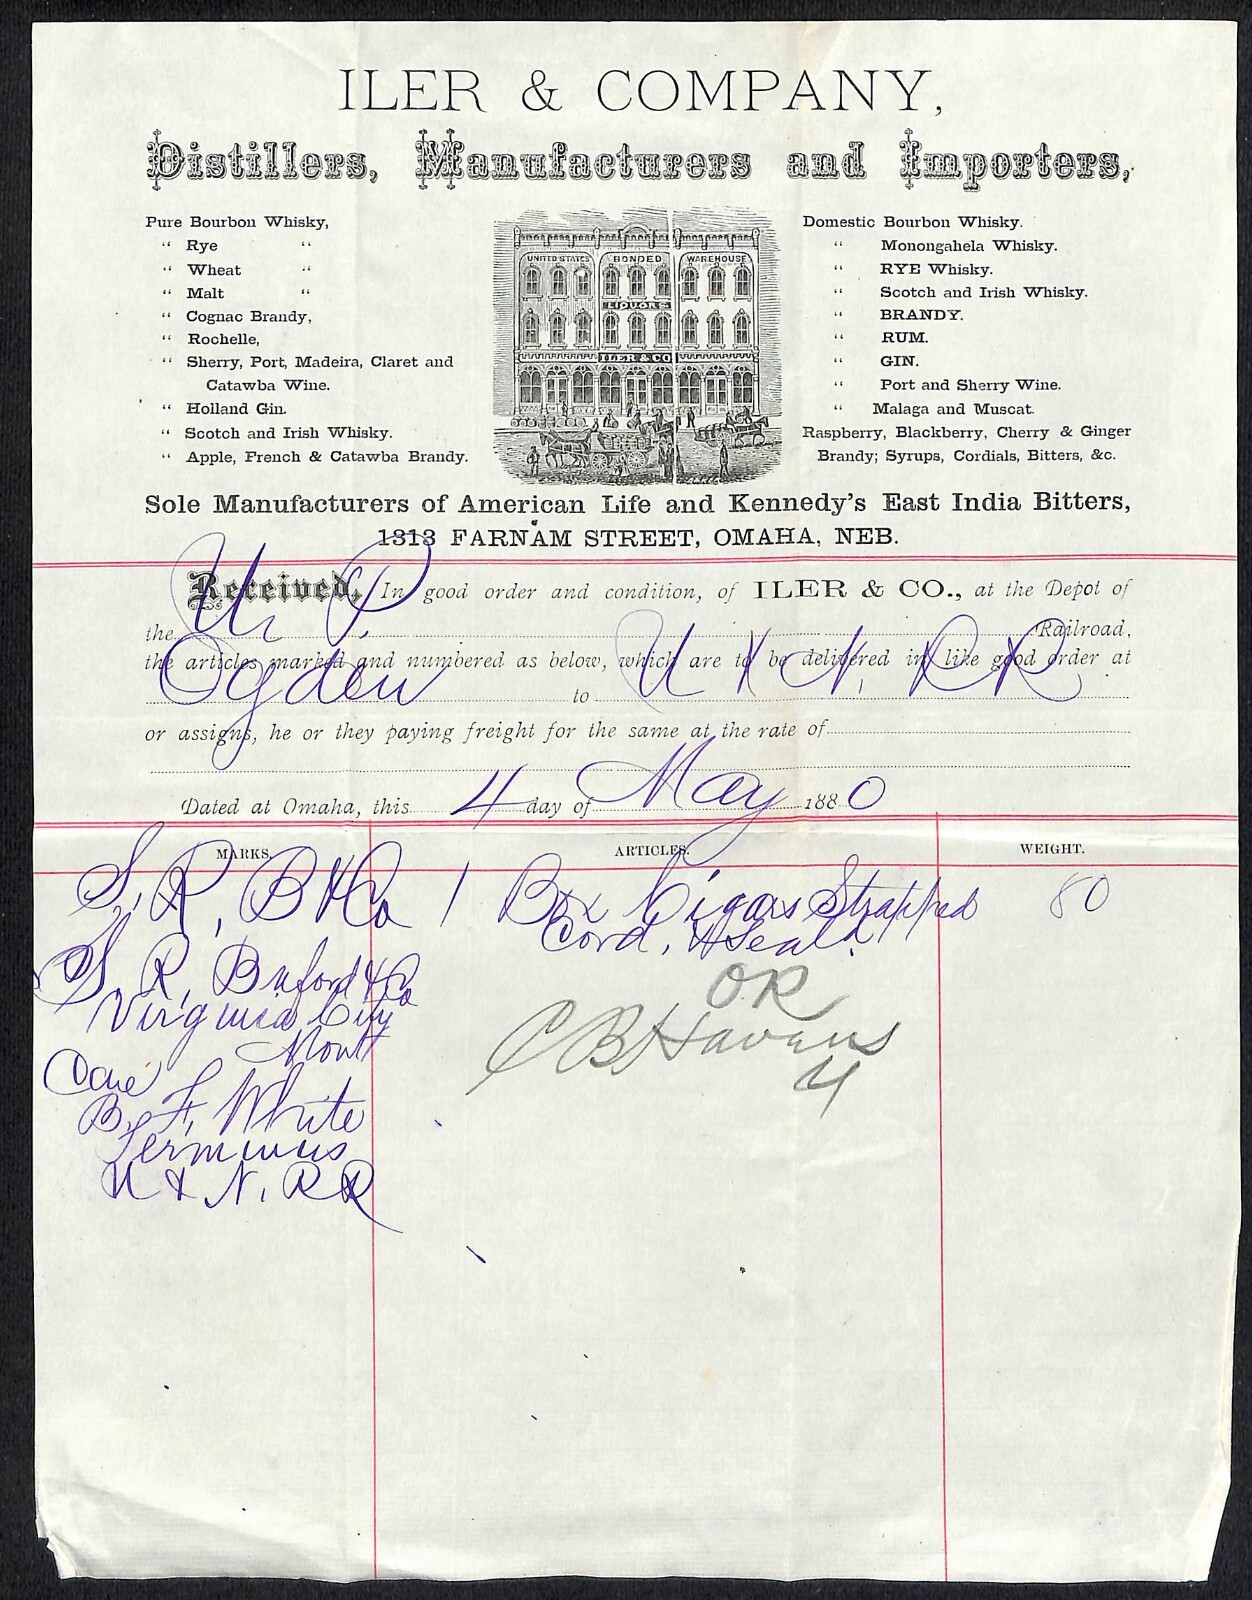 ILER & COMPANY,
Distillers, Manufacturers and Importers,
Pure Bourbon Whisky,
“ Rye “
“ Wheat “
“ Malt “
“ Cognac Brandy,
“ Rochelle,
“ Sherry, Port, Madeira, Claret and
Catawba Wine.
“ Holland Gin.
“ Scotch and Irish Whisky.
“ Apple, French & Catawba Brandy.
UNITED STATES BONDED WAREHOUSE
LIQUORS
ILER & CO
Domestic Bourbon Whisky.
“ Monongahela Whisky.
“ RYE Whisky.
“ Scotch and Irish Whisky.
“ BRANDY.
“ RUM.
“ GIN.
“ Port and Sherry Wine.
“ Malaga and Muscat.
Raspberry, Blackberry, Cherry & Ginger
Brandy; Syrups, Cordials, Bitters, &c.
Sole Manufacturers of American Life and Kennedy's East India Bitters,
1313 FARNAM STREET, OMAHA, NEB.
Received, In good order and condition, of ILER & CO., at the Depot of
the U. P. Railroad,
the articles marked and numbered as below, which are to be delivered in like good order at
Ogden to U & N. RR
or assigns, he or they paying freight for the same at the rate of
Dated at Omaha, this 4 day of May 1880
MARKS. ARTICLES. WEIGHT.
S. R. B & Co 1 Box Cigars Strapped 80
Cord, & Seald.
S. R. Buford & Co
Virginia City
Mont
Care
B. F. White
Terminus
U & N. RR
OK
C B Havens
4